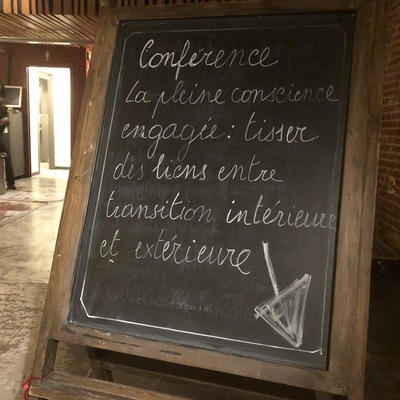 Conférence
La pleine conscience
engagée : tisser
des liens entre
transition intérieure
et extérieure